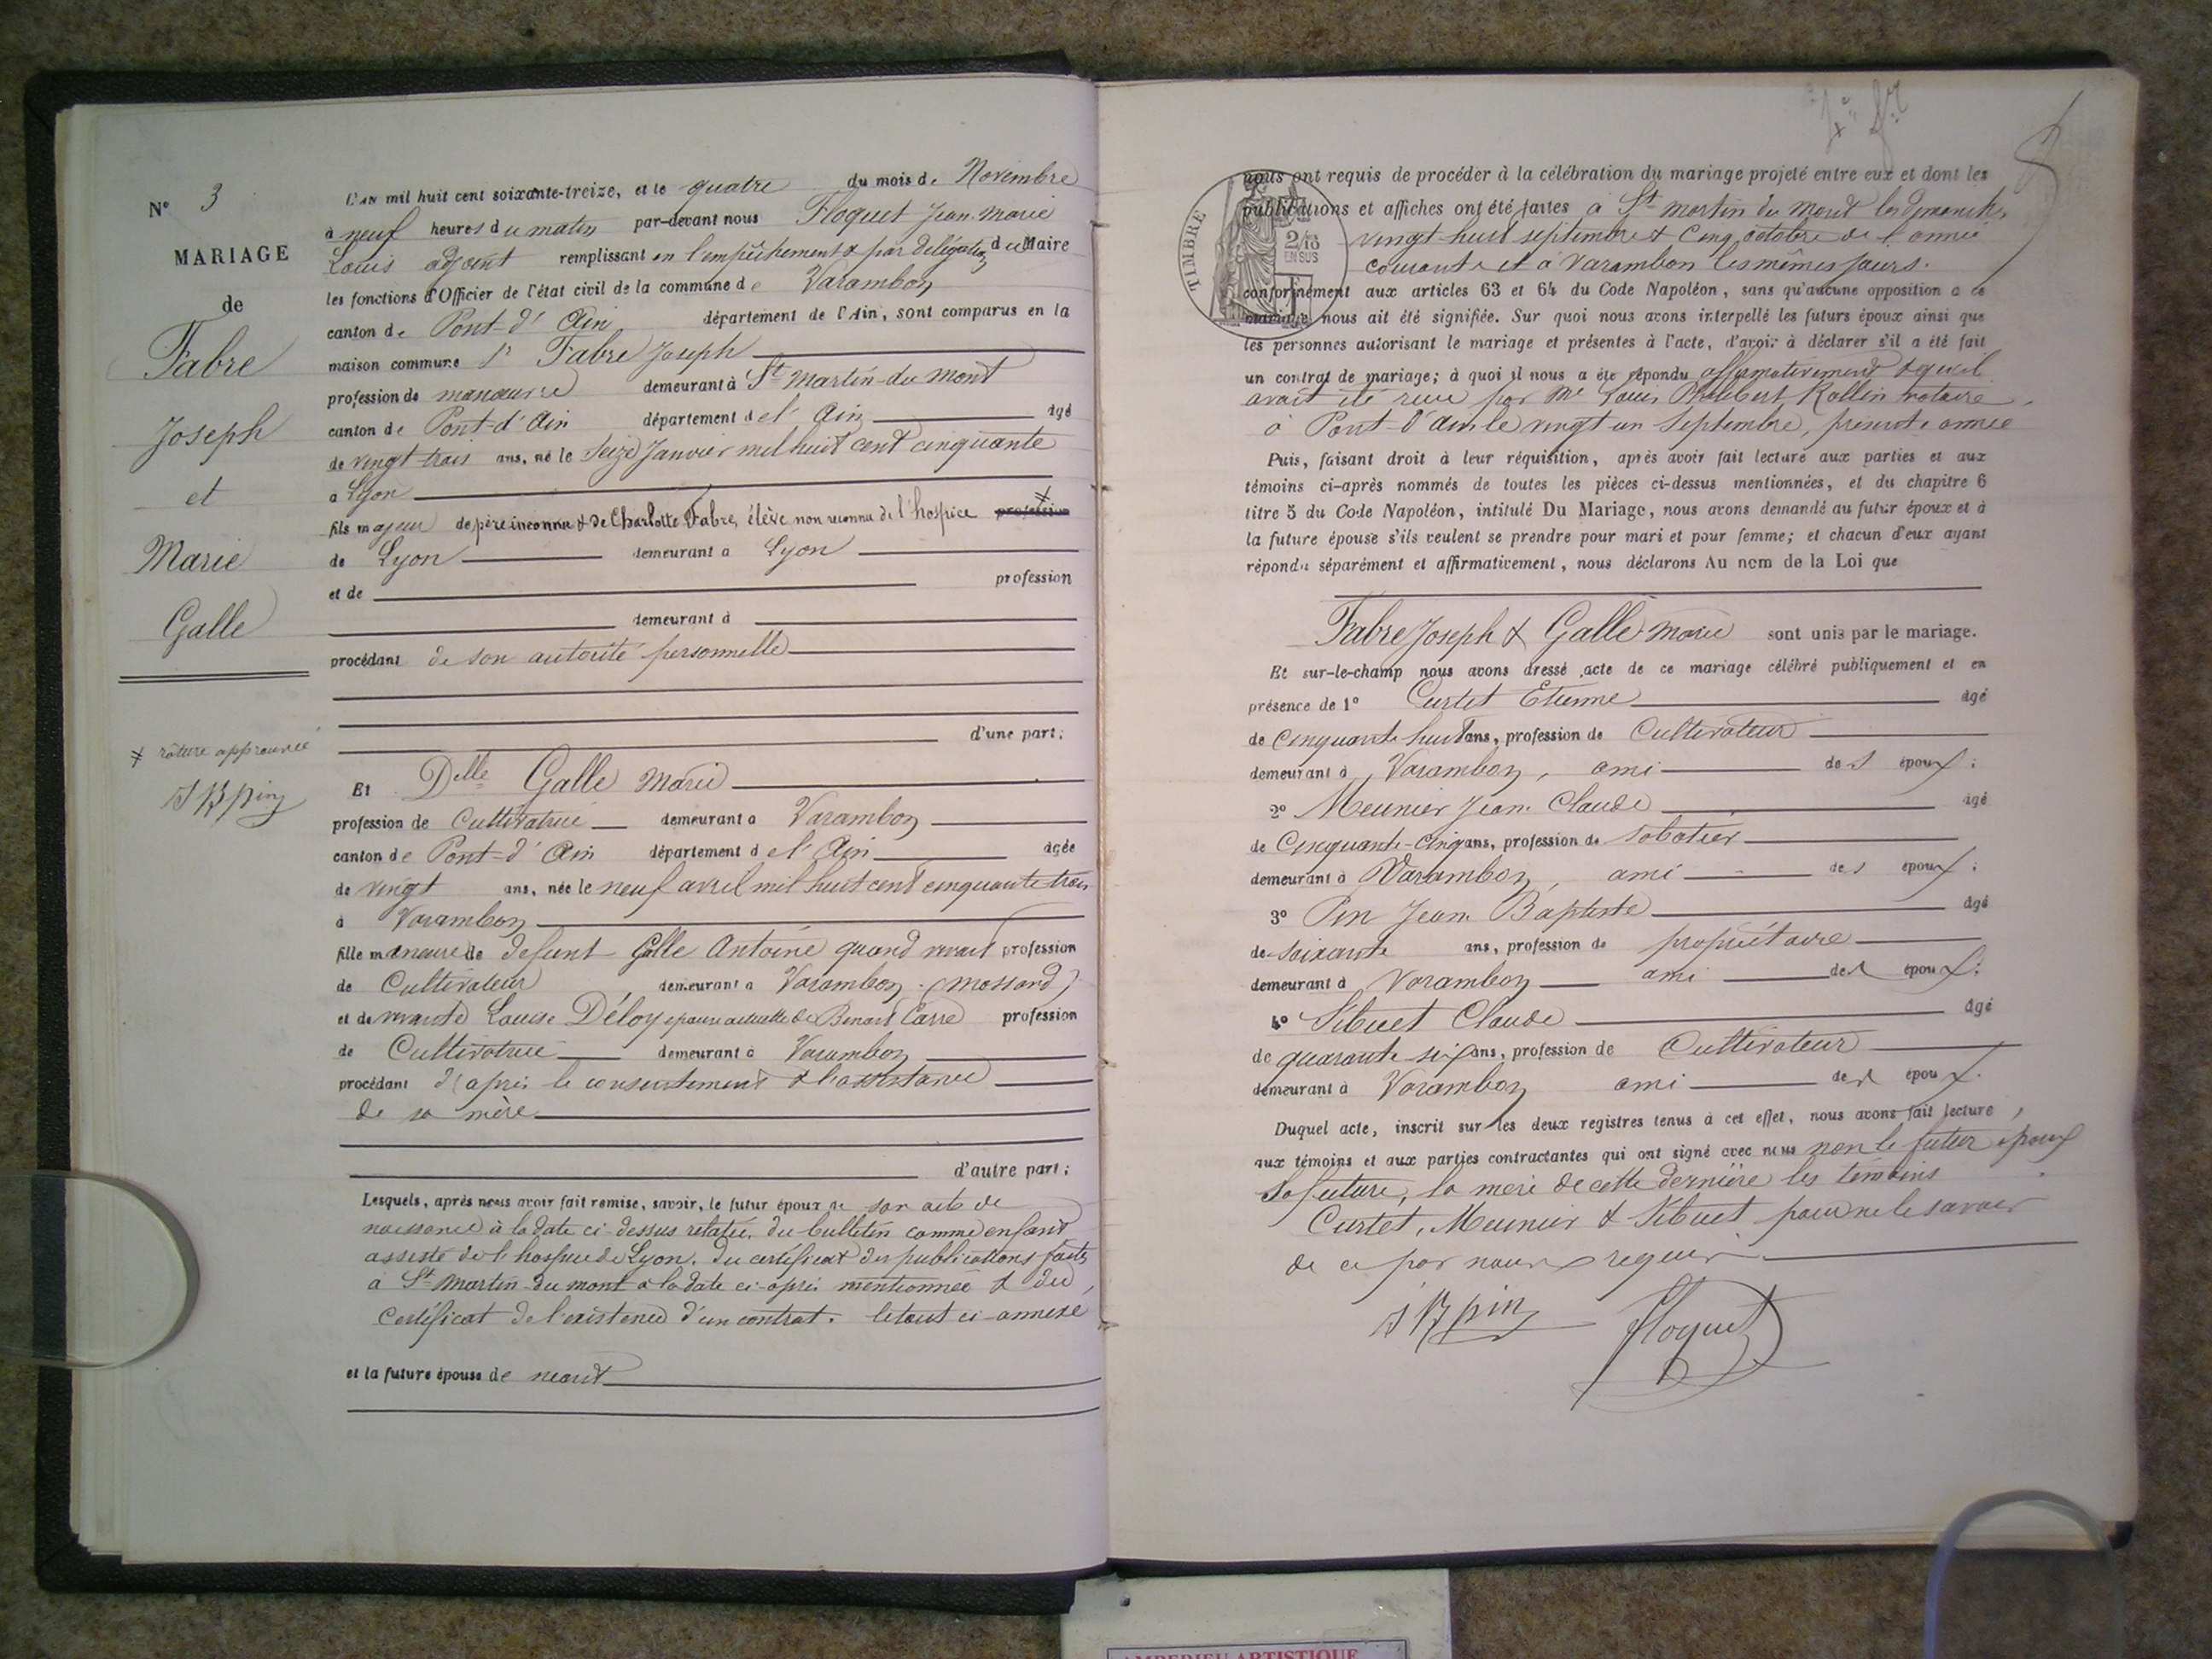 N° 3
MARIAGE
de
Fabre
Joseph
et
Marie
Galle
x rature approuvée
J B Pin
L'an mil huit cent soixante-treize, et le quatre du mois de Novembre
à neuf heures du matin par-devant nous Floquet Jean-Marie
Louis adjoint remplissant en l'empêchement & par délégation du Maire
les fonctions d'Officier de l'état civil de la commune de Varambon
canton de Pont-d'Ain département de l'Ain, sont comparus en la
maison commune Sr Fabre Joseph
profession de manœuvre demeurant à St Martin-du-Mont
canton de Pont-d'Ain département de l'Ain âgé
de vingt trois ans, né le Seize Janvier mil huit cent cinquante
à Lyon
fils majeur de père inconnu & de Charlotte Fabre, élève non reconnu de l'hospice profession x
de Lyon demeurant à Lyon
et de profession
demeurant à
procédant de son autorité personnelle
d'une part;
Et Delle Galle Marie
profession de Cultivatrice demeurant à Varambon
canton de Pont-d'Ain département de l'Ain âgée
de vingt ans, née le neuf avril mil huit cent cinquante trois
à Varambon
fille mineure de défunt Galle Antoine quand vivait profession
de Cultivateur demeurant à Varambon (Mossard)
et de vivante Louise Déloy épouse actuelle de Benoit Carre profession
de Cultivatrice demeurant à Varambon
procédant d'après le consentement & l'assistance
de sa mère
d'autre part;
Lesquels, après nous avoir fait remise, savoir, le futur époux de son acte de
naissance à la date ci-dessus relatée, du bulletin comme enfant
assisté de l'hospice de Lyon, du certificat des publications faites
à St Martin-du-mont à la date ci-après mentionnée & du
Certificat de l'existence d'un contrat. le tout ci-annexé
et la future épouse de néant
TIMBRE
2/10
EN SUS
nous ont requis de procéder à la célébration du mariage projeté entre eux et dont les
publications et affiches ont été faites à St Martin du Mont les dimanches
vingt-huit septembre & Cinq octobre de l'année
courante et à Varambon les mêmes jours.
conformément aux articles 63 et 64 du Code Napoléon, sans qu'aucune opposition à ce
mariage nous ait été signifiée. Sur quoi nous avons interpellé les futurs époux ainsi que
les personnes autorisant le mariage et présentes à l'acte, d'avoir à déclarer s'il a été fait
un contrat de mariage; à quoi il nous a été répondu affirmativement & qu'il
avait été reçu par Me Louis Philibert Rollin notaire
à Pont-d'Ain le vingt un Septembre, présente année
Puis, faisant droit à leur réquisition, après avoir fait lecture aux parties et aux
témoins ci-après nommés de toutes les pièces ci-dessus mentionnées, et du chapitre 6
titre 5 du Code Napoléon, intitulé Du Mariage, nous avons demandé au futur époux et à
la future épouse s'ils veulent se prendre pour mari et pour femme; et chacun d'eux ayant
répondu séparément et affirmativement, nous déclarons Au nom de la Loi que
Fabre Joseph & Galle Marie sont unis par le mariage.
Et sur-le-champ nous avons dressé acte de ce mariage célébré publiquement et en
présence de 1° Curtet Etienne âgé
de Cinquante huit ans, profession de Cultivateur
demeurant à Varambon, ami des époux;
2° Meunier Jean Claude âgé
de Cinquante-cinq ans, profession de sabotier
demeurant à Varambon, ami des époux;
3° Pin Jean Baptiste âgé
de soixante ans, profession de propriétaire
demeurant à Varambon ami des époux;
4° Sibuet Claude âgé
de quarante six ans, profession de Cultivateur
demeurant à Varambon ami des époux.
Duquel acte, inscrit sur les deux registres tenus à cet effet, nous avons fait lecture
aux témoins et aux parties contractantes qui ont signé avec nous non le futur époux
la future, la mère de cette dernière les témoins
Curtet, Meunier & Sibuet pour ne le savoir
de ce par nous requis
J B Pin Floquet
AMBERIEU ARTISTIQUE